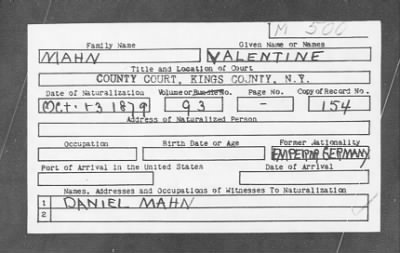 M 500
Family Name Given Name or Names
MAHN VALENTINE
Title and Location of Court
COUNTY COURT, KINGS COUNTY, N.Y.
Date of Naturalization Volume or Bundle No. Page No. Copy of Record No.
Oct. 23 1879 93 - 154
Address of Naturalized Person
Occupation Birth Date or Age Former Nationality
EMPEROR GERMANY
Port of Arrival in the United States Date of Arrival
Names, Addresses and Occupations of Witnesses To Naturalization
1 DANIEL MAHN
2